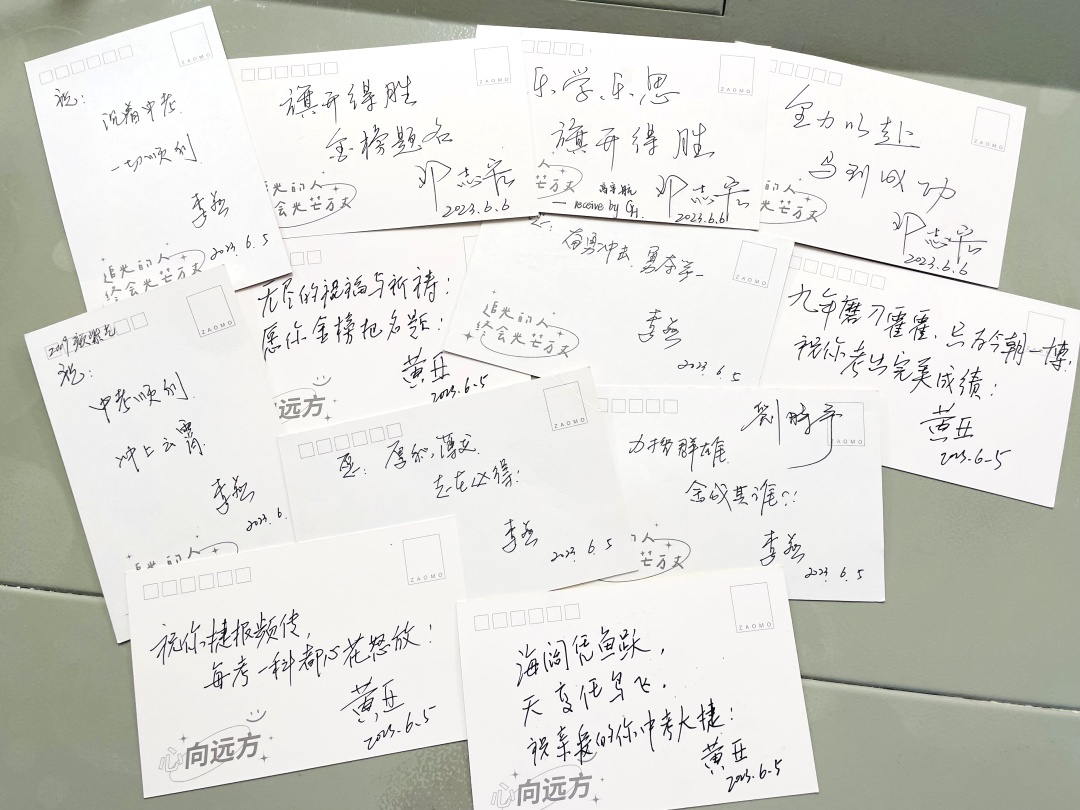 祝:
沉着中考
一切顺利
李燕
2023.6.5
追光的人
终会光芒万丈
ZAOMO
旗开得胜
金榜题名
邓志宏
2023.6.6
追光的人
会光芒万丈
ZAOMO
乐学乐思
旗开得胜
邓志宏
2023.6.6
receive by
人
芒万丈
ZAOMO
全力以赴
马到成功
邓志宏
2023.6.6
的人
光芒万丈
ZAOMO
祝:
中考顺利
冲上云霄
李燕
2023.6.
追光的人
ZAOMO
无尽的祝福与祈祷!
愿你金榜把名题!
黄亚
2023.6.5
远方
奋勇冲击 勇夺第一
李燕
2023.6.5
追光的人
终会光芒万丈
ZAOMO
九年磨刀霍霍,只在今朝一搏!
祝你考出完美成绩!
黄亚
2023.6.5
愿: 厚积薄发
志在必得!
李燕
2023.6.5
ZAOMO
力拔群雄
舍我其谁?!
李燕
2023.6.5
人
芒万丈
ZAOMO
祝你捷报频传,
每考一科都心花怒放!
黄亚
2023.6.5
心向远方
ZAOMO
海阔凭鱼跃,
天高任鸟飞.
祝亲爱的你中考大捷!
黄亚
2023.6.5
心向远方
ZAOMO